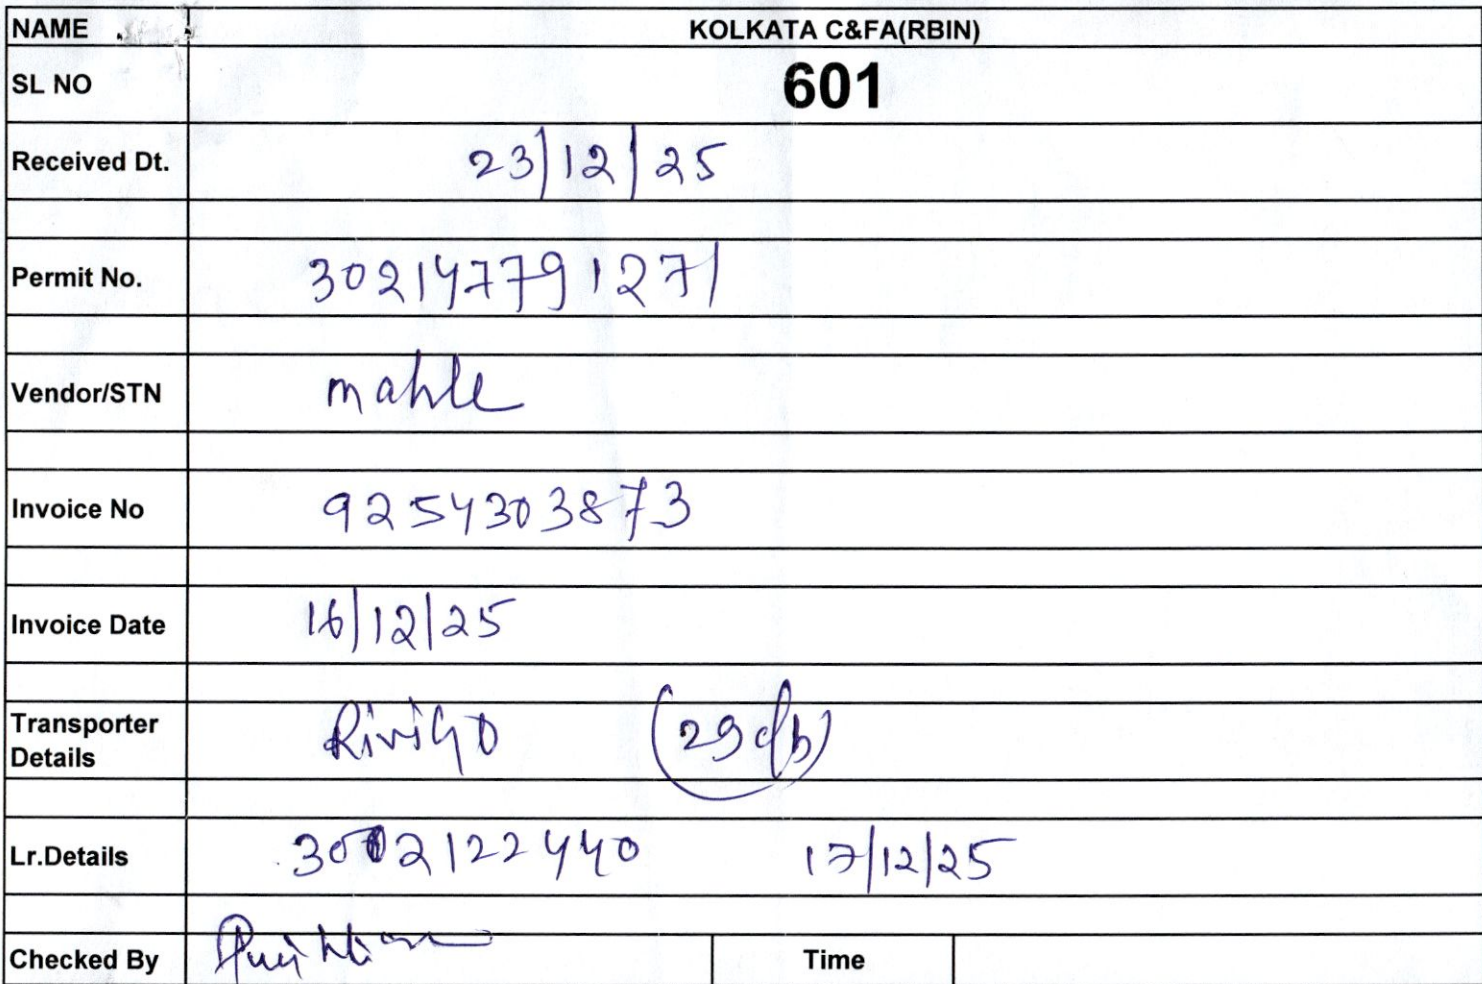 NAME KOLKATA C&FA(RBIN)
SL NO 601
Received Dt. 23/12/25
Permit No. 302147791271
Vendor/STN mahle
Invoice No 9254303873
Invoice Date 16/12/25
Transporter Details Rivigo (29c/b)
Lr.Details 3002122440 17/12/25
Checked By Time